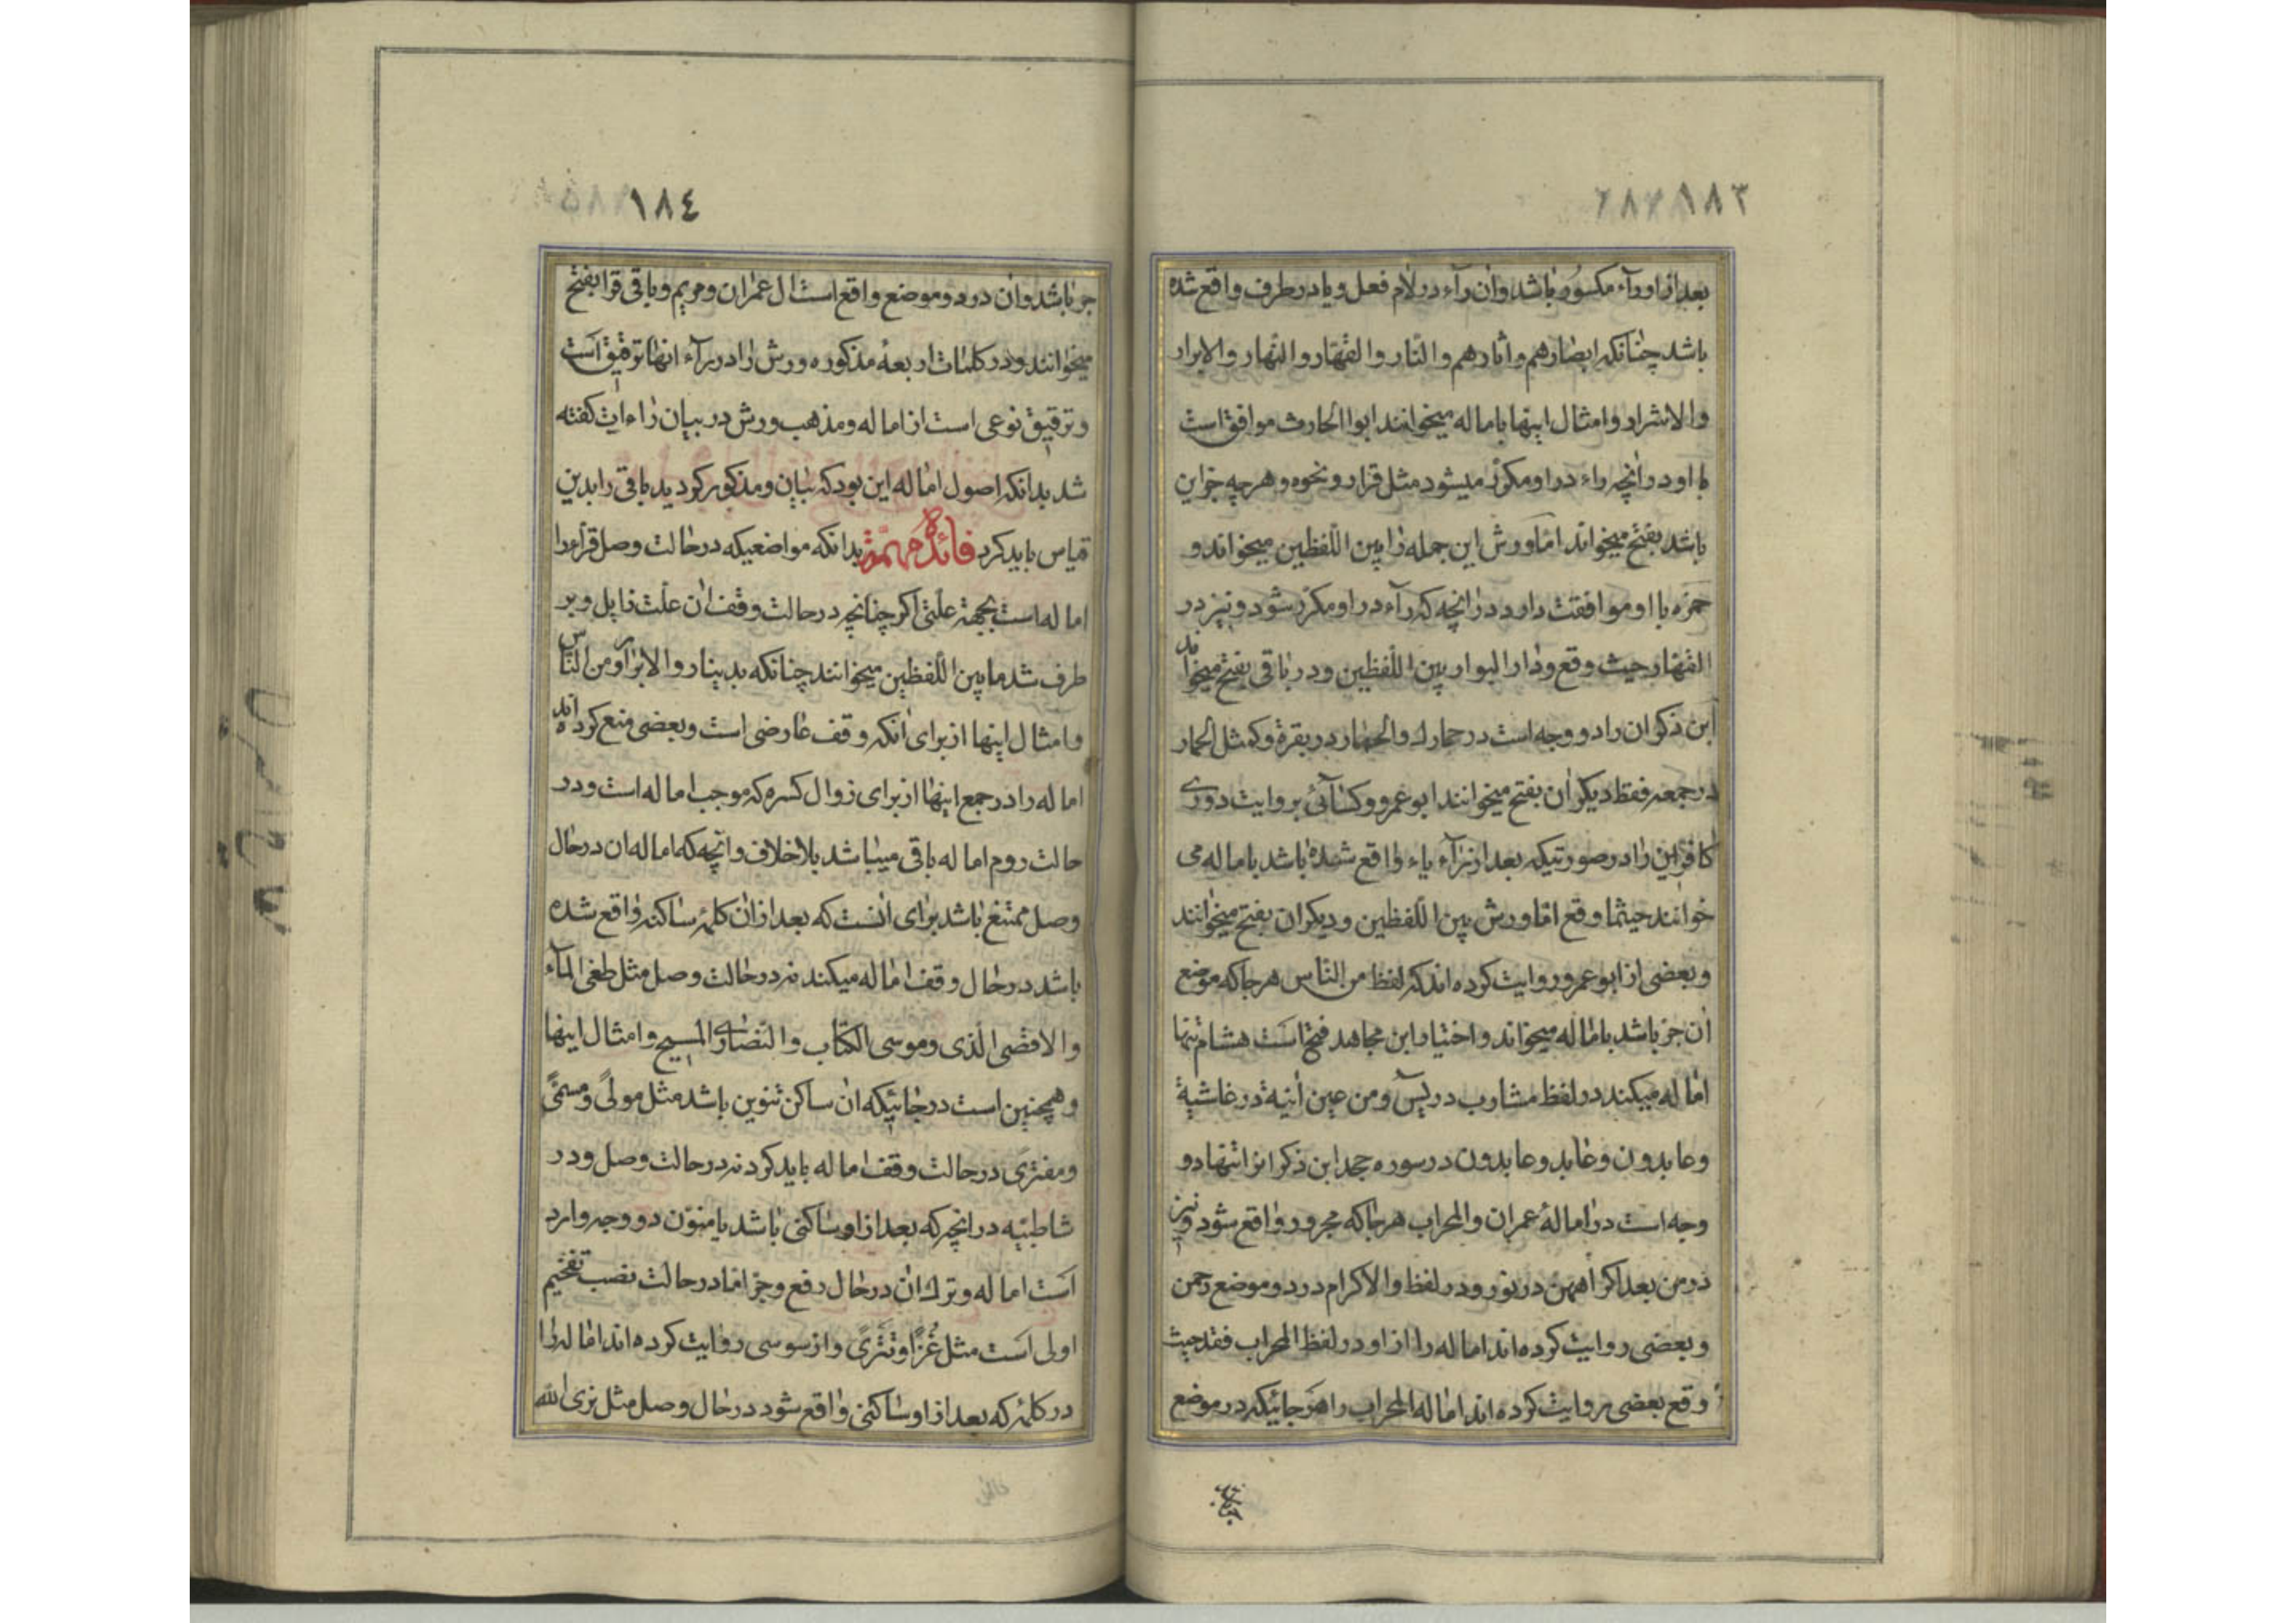 ١٨٣
بعد از او رآء مکسور باشد وان رآء در لام فعل و یا در طرف واقع شده
باشد چنانکه ابصارهم و اثارهم والنار والقهار والنهار والابرار
والاشرار و امثال اینها باماله میخوانند ابوالحارث موافق است
با او در انچه راء در او مکرر میشود مثل قرار و نحوه و هرچه جز این
باشد بفتح میخواند اما ورش این جمله را بین اللفظین میخواند و
حمزه با او موافقت دارد در انچه که رآء در او مکرر شود و نیز در
القهار حیث وقع و دار البوار بین اللفظین و در باقی بفتح میخواند
ابن ذکوان را دو وجه است در حمارك والحمار در بقرة و کمثل الحمار
در جمعه فقط دیکران بفتح میخوانند ابو عمرو و کسآئی بروایت دوری
کافرین را در صورتیکه بعد از رآء یاء واقع شده باشد باماله می
خوانند حیثما وقع اما ورش بین اللفظین و دیکران بفتح میخوانند
و بعضی از ابو عمرو روایت کرده اند که لفظ من الناس هر جا که موضع
ان جر باشد باماله میخواند و اختیار ابن مجاهد فتح است هشام تنها
اماله میکند در لفظ مشارب در یس و من عین انیة در غاشیة
و عابدون و عابد و عابدون در سوره جحد ابن ذکوانرا تنها دو
وجه است در امالۀ عمران والمحراب هر جا که مجرور واقع شود و نیز
در من بعد اکراههن در نور و در لفظ والاکرام در دو موضع رحمن
و بعضی روایت کرده اند اماله را از او در لفظ المحراب فقد حیث
وقع بعضی روایت کرده اند اماله المحراب را هر جائیکه در موضع
١٨٤
جر باشد وان در دو موضع واقع است ال عمران و مریم و باقی قرا بفتح
میخوانند و در کلمات اربعۀ مذکوره ورش را در رآء انها ترقیق است
و ترقیق نوعی است از اماله و مذهب ورش در بیان راءات کفته
شد بدانکه اصول اماله این بود که بیان و مذکور کردید باقی را بدین
قیاس باید کرد فائدۀ مهمّة بدانکه مواضعیکه در حالت وصل قرآءرا
اماله است بجهة علتی اکر چنانچه در حالت وقف ان علت زایل و بر
طرف شد مابین اللفظین میخوانند چنانکه بدینار والابرار و من الناس
و امثال اینها از برای انکه وقف عارضی است و بعضی منع کرده اند
اماله را در جمع اینها از برای زوال کسره که موجب اماله است و در
حالت روم اماله باقی میباشد بلاخلاف و انچه که اماله ان در حال
وصل ممتنع باشد برای انست که بعد از ان کلمۀ ساکنه واقع شده
باشد در حال وقف اماله میکند نه در حالت وصل مثل طغی المآء
والاقصی الذی و موسی الکتاب والنصاری المسیح و امثال اینها
و همچنین است در جائیکه ان ساکن تنوین باشد مثل مولیً و مسمیً
و مفتریً در حالت وقف اماله باید کرد نه در حالت وصل و در
شاطبیه در انچه که بعد از او ساکنی باشد یا منون دو وجه وارد
است اماله و ترك ان در حال رفع و جر اما در حالت نصب تفخیم
اولی است مثل غزًا و تتریً و از سوسی روایت کرده اند اماله را
در کلمۀ که بعد از او ساکنی واقع شود در حال وصل مثل نری الله